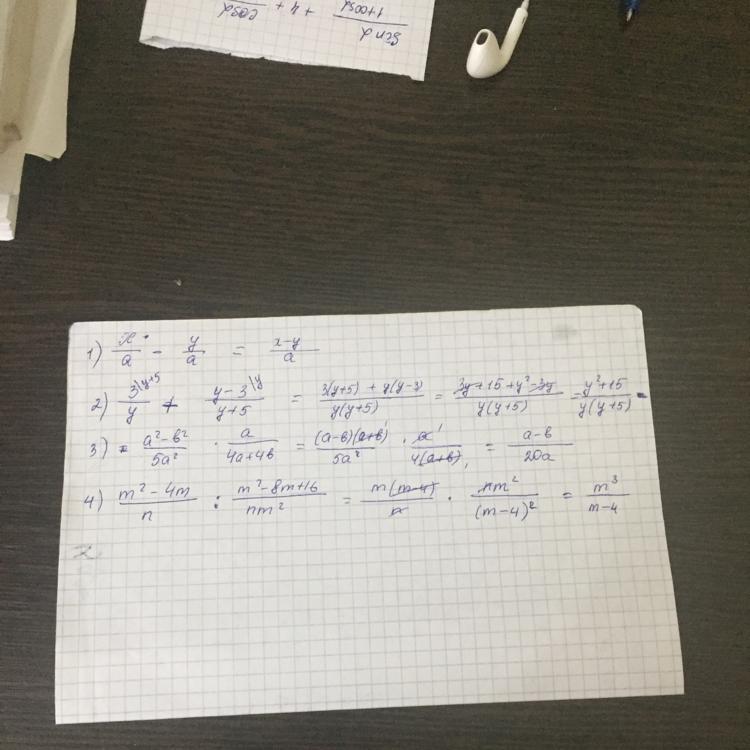 sin α / 1+cos α + 4 + cos α
1) x/a - y/a = x-y/a
2) 3\y+5/y + y-3\y/y+5 = 3(y+5) + y(y-3)/y(y+5) = 3y+15+y²-3y/y(y+5) = y²+15/y(y+5)
3) a²-b²/5a² · a/4a+4b = (a-b)(a+b)¹/5a² · a¹/4(a+b)₁ = a-b/20a
4) m²-4m/n : m²-8m+16/nm² = m(m-4)/n · nm²/(m-4)² = m³/m-4